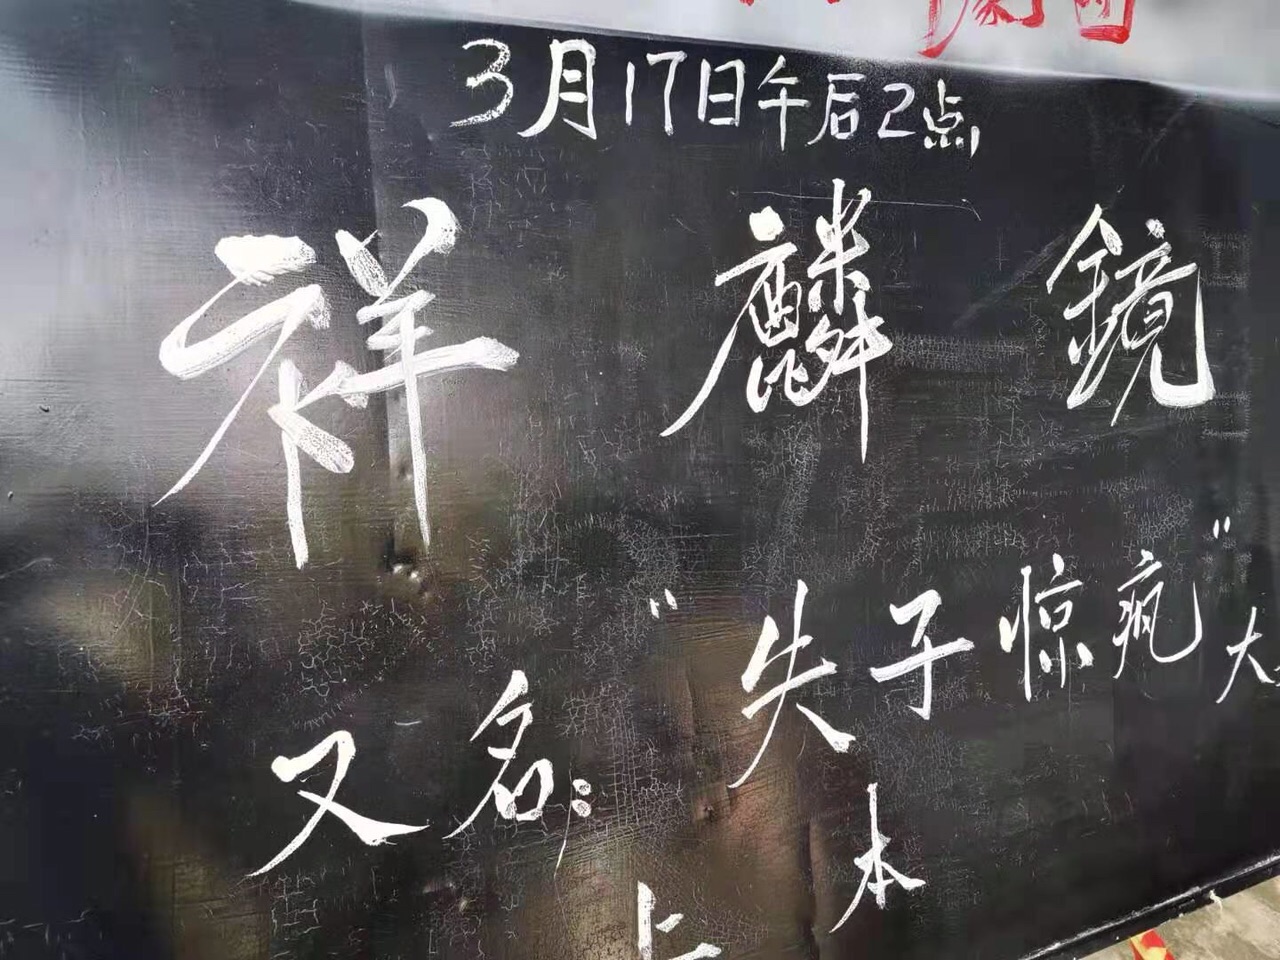 劇团
3月17日午后2点
祥麟鏡
又名："失子惊疯"大
上本